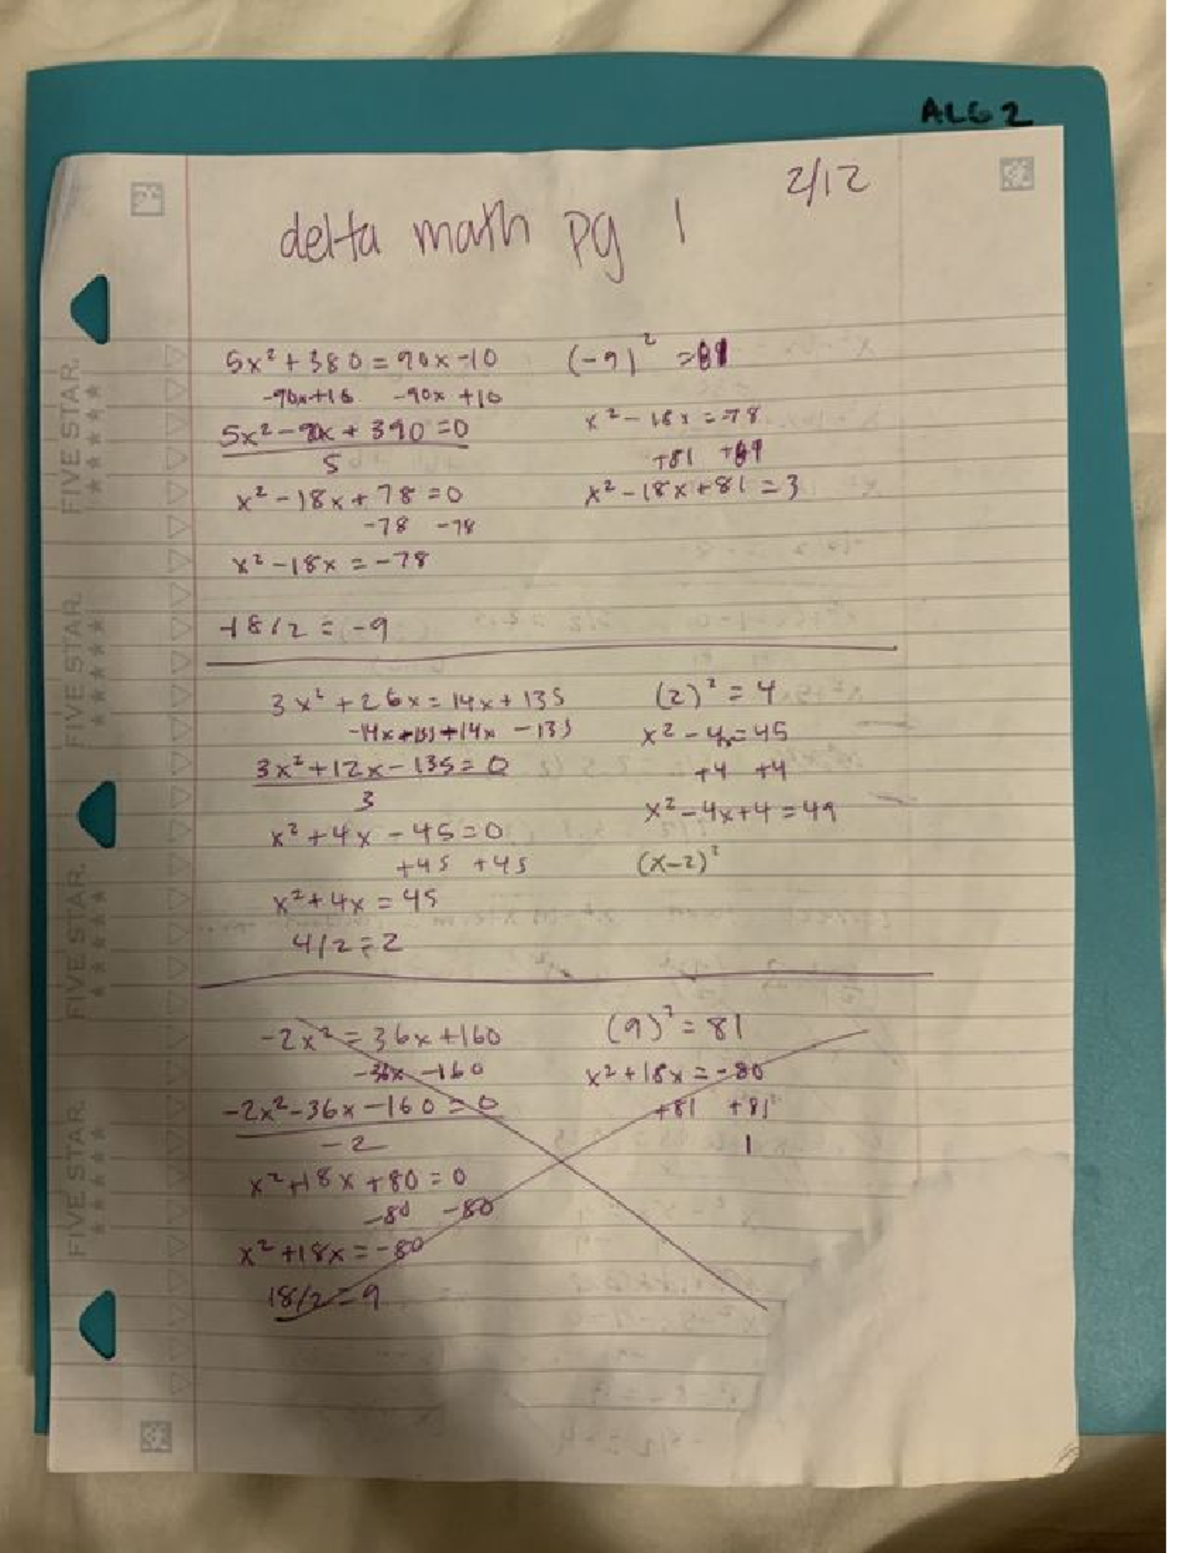 ALG 2
2/12
delta math pg 1
5x² + 380 = 90x - 10
-90x+10 -90x +10
5x² - 90x + 390 = 0
5
x² - 18x + 78 = 0
-78 -78
x² - 18x = -78
-18/2 = -9
(-9)² = 81
x² - 18x = -78
+81 +81
x² - 18x + 81 = 3
3x² + 26x = 14x + 135
-14x +14x - 135
3x² + 12x - 135 = 0
3
x² + 4x - 45 = 0
+45 +45
x² + 4x = 45
4/2 = 2
(2)² = 4
x² - 4x = 45
+4 +4
x² - 4x + 4 = 49
(x-2)²
-2x² = 36x + 160
-36x -160
-2x² - 36x - 160 = 0
-2
x² + 18x + 80 = 0
-80 -80
x² + 18x = -80
18/2 = 9
(9)² = 81
x² + 18x = -80
+81 +81
1
FIVE STAR.
FIVE STAR.
FIVE STAR.
FIVE STAR.